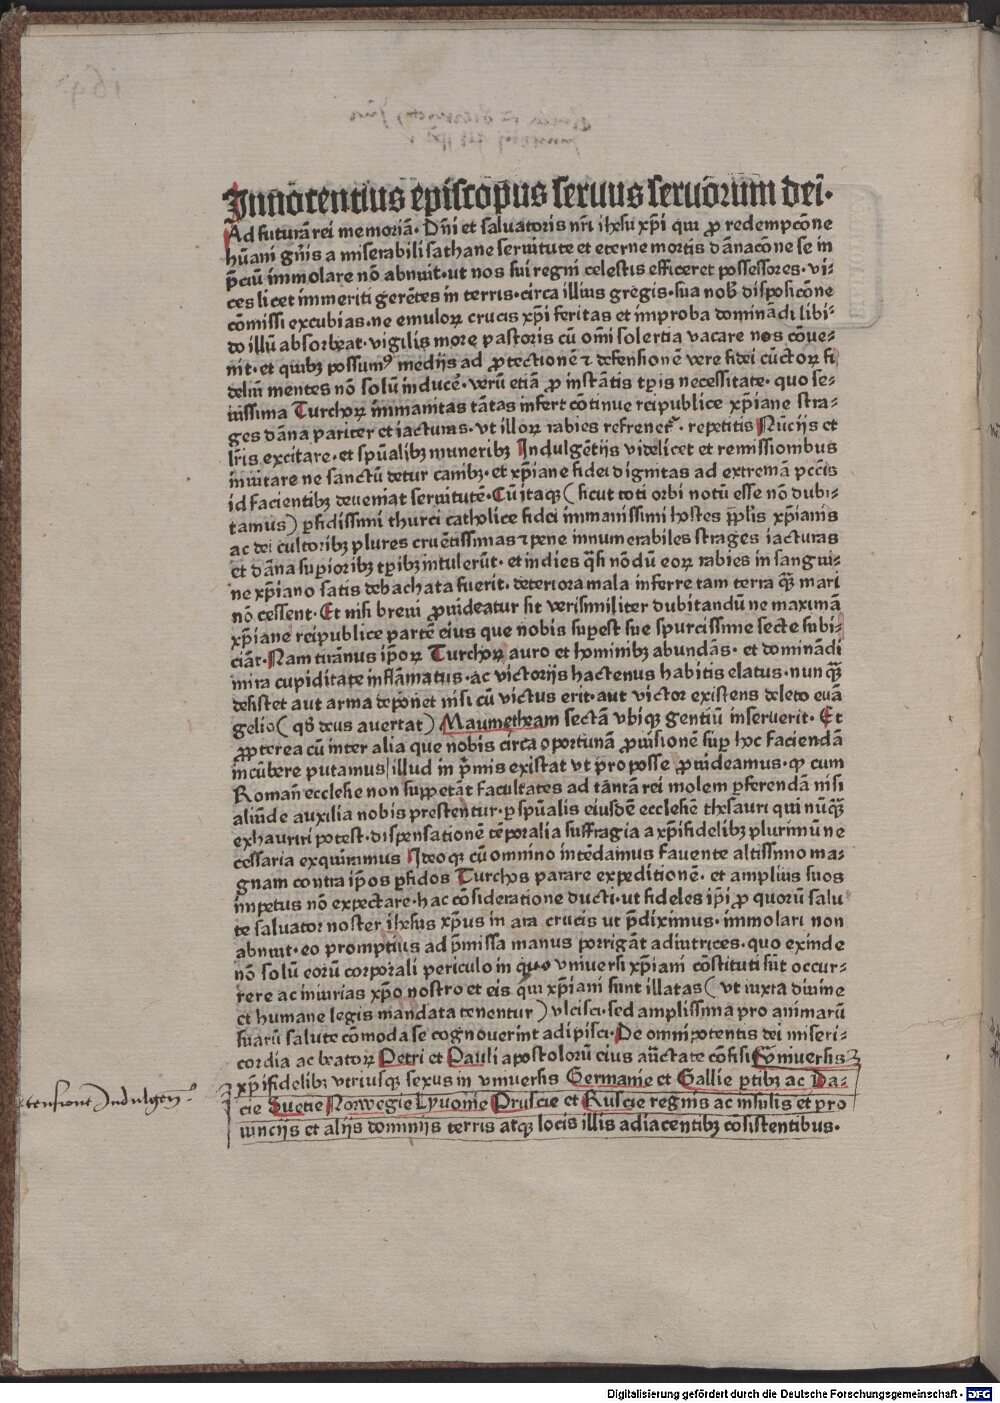 Innocentius episcopus seruus seruorum dei.
Ad futurā rei memoriā. Dn̄i et saluatoris nr̄i ihesu xp̄i qui ꝓ redempcōne
hūani gn̄is a miserabili sathane seruitute et eterne mortis dānacōne se in
p̄ciū immolare nō abnuit. ut nos sui regni celestis efficeret possessores. vi⸗
ces licet immeriti gerētes in terris. circa illius gregis. sua nob̄ disposicōne
cōmissi excubias. ne emuloꝝ crucis xp̄i feritas et improba domināndi libi⸗
do illū absorbeat. vigilis more pastoris cū om̄i solertia vacare nos cōue⸗
nit. et quibꝫ possumꝰ medijs ad ꝓtectionē ⁊ defensionē vere fidei cūctoꝝ fi
deliū mentes nō solū inducē. verū etiā ꝓ instātis tp̄is necessitate. quo se⸗
uissima Turchoꝝ īmmanitas tātas infert cōtinue reipublice xp̄iane stra⸗
ges dāna pariter et iacturas. vt illoꝝ rabies refreneť. repetitis Nūcijs et
lr̄is excitare. et sp̄ualibꝫ muneribꝫ Indulgētijs videlicet et remissionibus
inuitare ne sanctū detur canibꝫ. et xp̄iane fidei dignitas ad extremā pcc̄is
id facientibꝫ deueniat seruitutē. Cū itaqꝫ (sicut toti orbi notū esse nō dubi⸗
tamus) ꝑfidissimi thurci catholice fidei immanissimi hostes pp̄lis xp̄ianis
ac dei cultoribꝫ plures cruētissimas ⁊ pene innumerabiles strages iacturas
et dāna supioribꝫ tp̄ibꝫ intulerūt. et indies q̄si nōdū eoꝝ rabies in sangui⸗
ne xp̄iano satis debachata fuerit. deteriora mala inferre tam terra qꝫ̄ mari
nō cessent. Et nisi breui ꝓuideatur sit verisimiliter dubitandū ne maximā
xp̄iane reipublice partē eius que nobis supest sue spurcissime secte subi⸗
ciāt. Nam tirānus ip̄oꝝ Turchoꝝ auro et hominibꝫ abundās. et domināndi
mira cupiditate inflāmatus. ac victorijs hactenus habitis elatus. nunqꝫ̄
desistet aut arma deponet nisi cū victus erit. aut victor existens deleto euā
gelio (qđ deus auertat) Maumetheam sectā vbiqꝫ gentiū inseruerit. Et
ꝓpterea cū inter alia que nobis circa oportunā ꝓuisionē suꝑ hoc faciendā
incūbere putamus/illud in p̄mis existat vt pro posse ꝓuideamus. ꝙ cum
Romañ ecclesie non suppetāt facultates ad tāntā rei molem ꝑferendā nisi
aliūde auxilia nobis prestentur. ꝑ sp̄ualis eiusdē ecclesiē thesauri qui nūqꝫ̄
exhauriri potest. dispensationē tēporalia suffragia a xp̄ifidelibꝫ plurimū ne
cessaria exquirimus Ideoqꝫ cū omnino intēdamus fauente altissimo ma⸗
gnam contra ip̄os ꝑfidos Turchos parare expeditionē. et amplius suos
impetus nō expectare. hac cōsideratione ducti. ut fideles ip̄i ꝓ quorū salu
te saluator noster ihesus xp̄us in ara crucis ut p̄diximus. immolari non
abnuit. eo promptius ad p̄missa manus porrigāt adiutrices. quo exinde
nō solū eorū corporali periculo in quo vniuersi xp̄iani cōstituti sūt occur⸗
rere ac iniurias xp̄o nostro et eis qui xp̄iani sunt illatas (vt iuxta diuine
et humane legis mandata tenentur) vlcisci. sed amplissima pro animarū
suarū salute cōmoda se cognouerint adipisci. De omnipotentis dei miseri⸗
cordia ac beatoꝝ Petri et Pauli apostolorū eius auc̄tate cōfisi Vniuersis
xp̄ifidelibꝫ vtriusqꝫ sexus in vniuersis Germanie et Gallie ꝑtibꝫ ac Da⸗
cie Suetie Norwegie Lyuonie Pruscie et Ruscie regnis ac insulis et pro
uincijs et alijs dominijs terris atqꝫ locis illis adiacentibꝫ cōsistentibus.
Digitalisierung gefördert durch die Deutsche Forschungsgemeinschaft - DFG